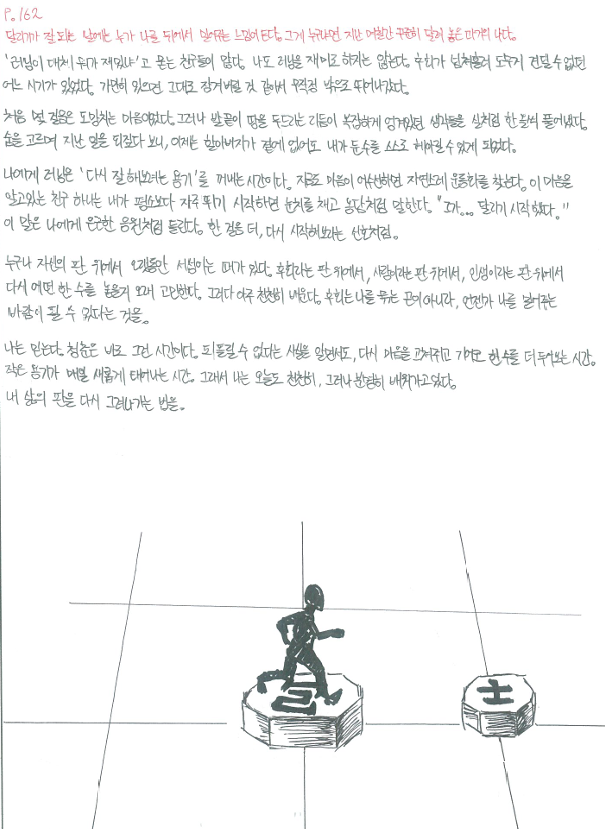 P.162
달리기가 잘 되는 날에는 누가 나를 뒤에서 밀어주는 느낌이 든다. 그게 누구냐면 지난 며칠간 꾸준히 달려 놓은 과거의 나다.
'러닝이 대체 뭐가 재밌냐'고 묻는 친구들이 많다. 나도 러닝을 재미로 하지는 않는다. 후회가 넘쳐흘러 도무지 견딜 수 없던
어느 시기가 있었다. 가만히 있으면 그대로 잠겨버릴 것 같아서 무작정 밖으로 뛰어나갔다.
처음 몇 걸음은 도망치는 마음이었다. 그러나 발끝이 땅을 두드리는 리듬이 복잡하게 엉켜있던 생각들을 실처럼 한 올씩 풀어냈다.
숨을 고르며 지난 일을 되짚다 보니, 이제는 할아버지가 곁에 없어도 내가 둔 수를 스스로 헤아릴 수 있게 되었다.
나에게 러닝은 '다시 잘 해보려는 용기'를 꺼내는 시간이다. 지금도 마음이 어수선하면 자연스레 운동화를 찾는다. 이 마음을
알고있는 친구 하나는 내가 평소보다 자주 뛰기 시작하면 눈치를 채고 농담처럼 말한다. "또가... 달리기 시작했다."
이 말은 나에게 은근한 응원처럼 들린다. 한 걸음 더, 다시 시작해보라는 신호처럼.
누구나 자신의 판 위에서 오랫동안 서성이는 때가 있다. 후회라는 판 위에서, 사람이라는 판 위에서, 인생이라는 판 위에서
다시 어떤 한 수를 놓을지 몰라 고민한다. 그러다 아주 천천히 배운다. 후회는 나를 묶는 끈이 아니라, 언젠가 나를 밀어주는
바람이 될 수 있다는 것을.
나는 믿는다. 청춘은 바로 그런 시간이다. 되돌릴 수 없다는 사실을 알면서도, 다시 마음을 고쳐쥐고 기꺼이 한 수를 더 두어보는 시간.
작은 용기가 매일 새롭게 태어나는 시간. 그래서 나는 오늘도 천천히, 그러나 분명히 배워가고 있다.
내 삶의 판을 다시 그려나가는 법을.
士